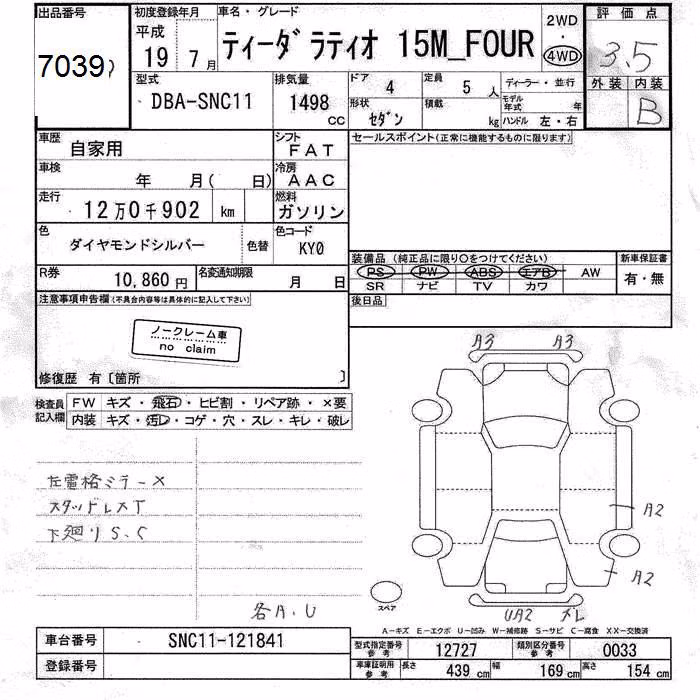 出品番号 初度登録年月 車名・グレード 2WD 評価点
7039) 平成 19 7月 ティーダ ラティオ 15M_FOUR ・ 4WD 3.5
型式 排気量 ドア 4 定員 5 人 ディーラー・並行 外装 内装
DBA-SNC11 1498 CC 形状 セダン 積載 kg モデル年式 年 ハンドル 左・右 B
車歴 自家用 シフト FAT セールスポイント(正常に機能するものに限ります)
車検 年 月( 日) 冷房 AAC
走行 12万0千902 km 燃料 ガソリン
色 ダイヤモンドシルバー 色替 色コード KY0
装備品 (純正品に限り○をつけてください) 新車保証書
PS PW ABS エアB AW 有・無
SR ナビ TV カワ
R券 10,860円 名変通知期限 月 日
注意事項申告欄(不具合内容等は具体的に記入して下さい) 後日品
ノークレーム車
no claim
修復歴 有〔箇所 〕
検査員記入欄 FW キズ・飛石・ヒビ割・リペア跡・×要
内装 キズ・汚レ・コゲ・穴・スレ・キレ・破レ
A3 A3
左電格ミラー×
スタッドレスT
下廻りS、C
A2
A2
各A、U
スペア
UA2 メレ
A-キズ E-エクボ U-凹み W-補修跡 S-サビ C-腐食 XX-交換済
車台番号 SNC11-121841
型式指定番号 参考 12727 類別区分番号 参考 0033
登録番号
車庫証明用 参考 長さ 439 cm 幅 169 cm 高さ 154 cm